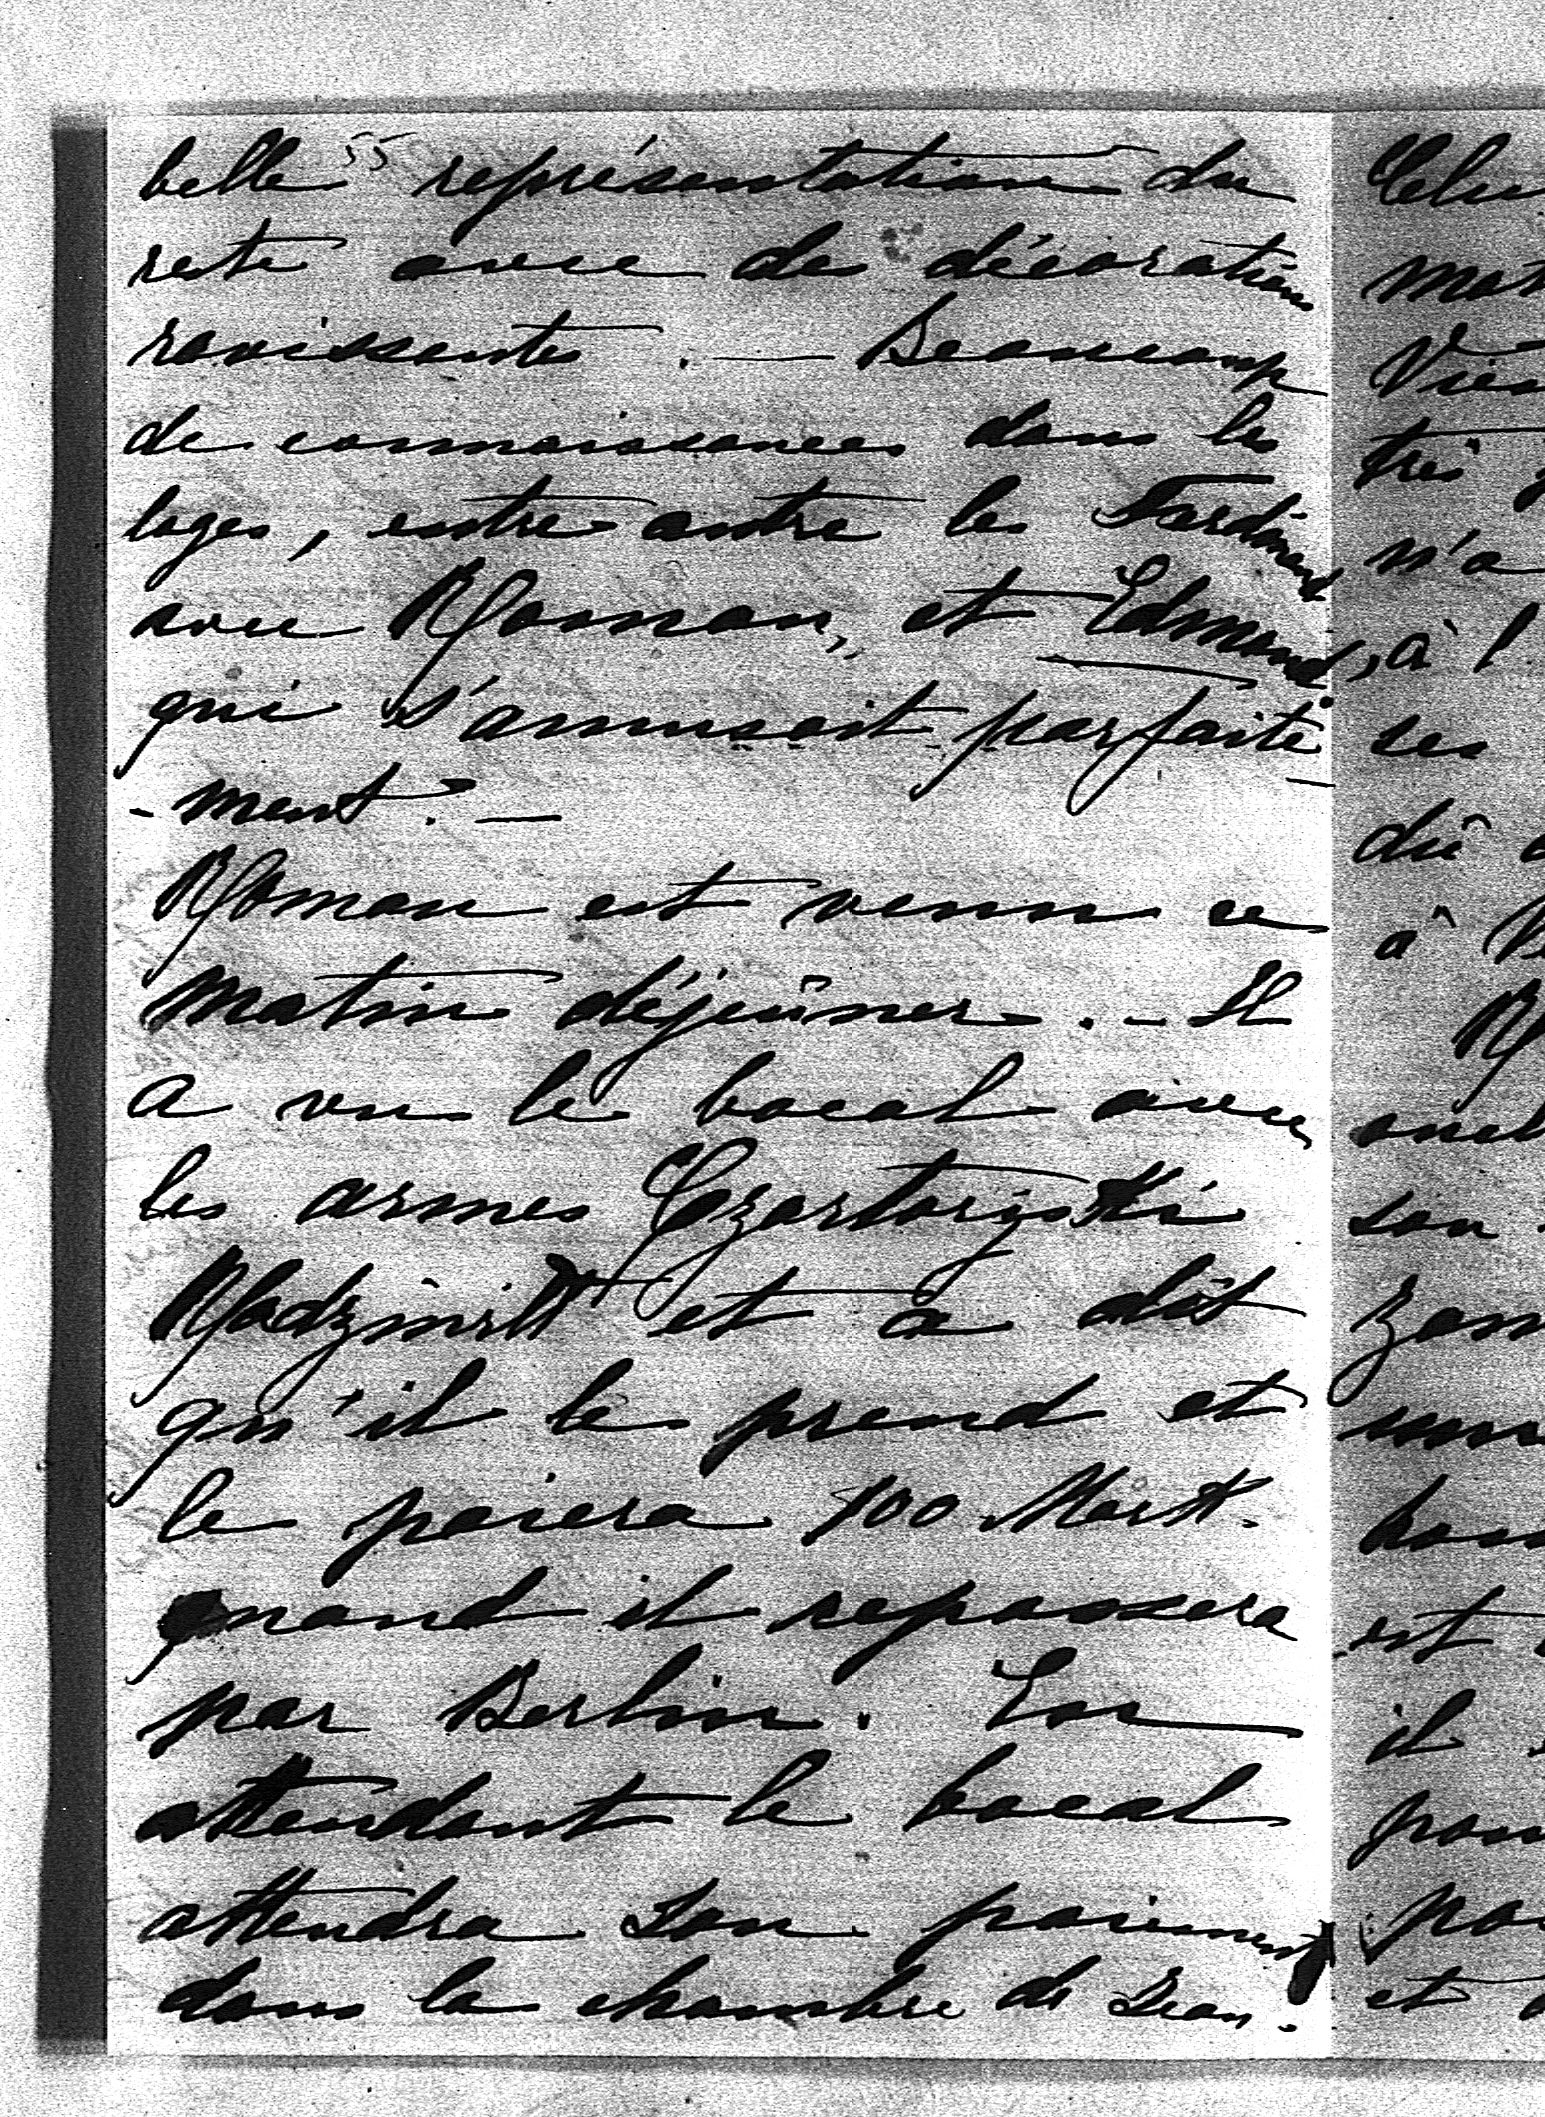 55
belle représentation du
reste avec de décorations
ravissantes. — Beaucoup
de connaissances dans les
loges, entre autre les Ferdinand
avec Roman, et Edmond,
qui s'amusait parfaite
- ment. —
Roman est venu ce
matin déjeûner. - Il
a vu le bocal avec
les armes Czartoryski
Radziwill et a dit
qu'il le prend et
le paiera 100 Mark.
quand il repassera
par Berlin. En
attendant le bocal
attendra son paiement
dans la chambre de Jean.
très
n'a
à l
ses
dû
à
son
est
il
et